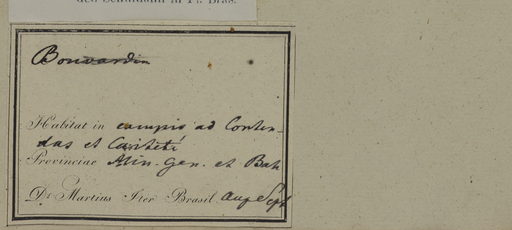 den Schumann in Fl. Bras.
Bouvardia
Habitat in campis ad Conten-
das et Caiteté
Provinciae Min. Gen. et Bah
Dr. Martius Iter Brasil Aug Sept